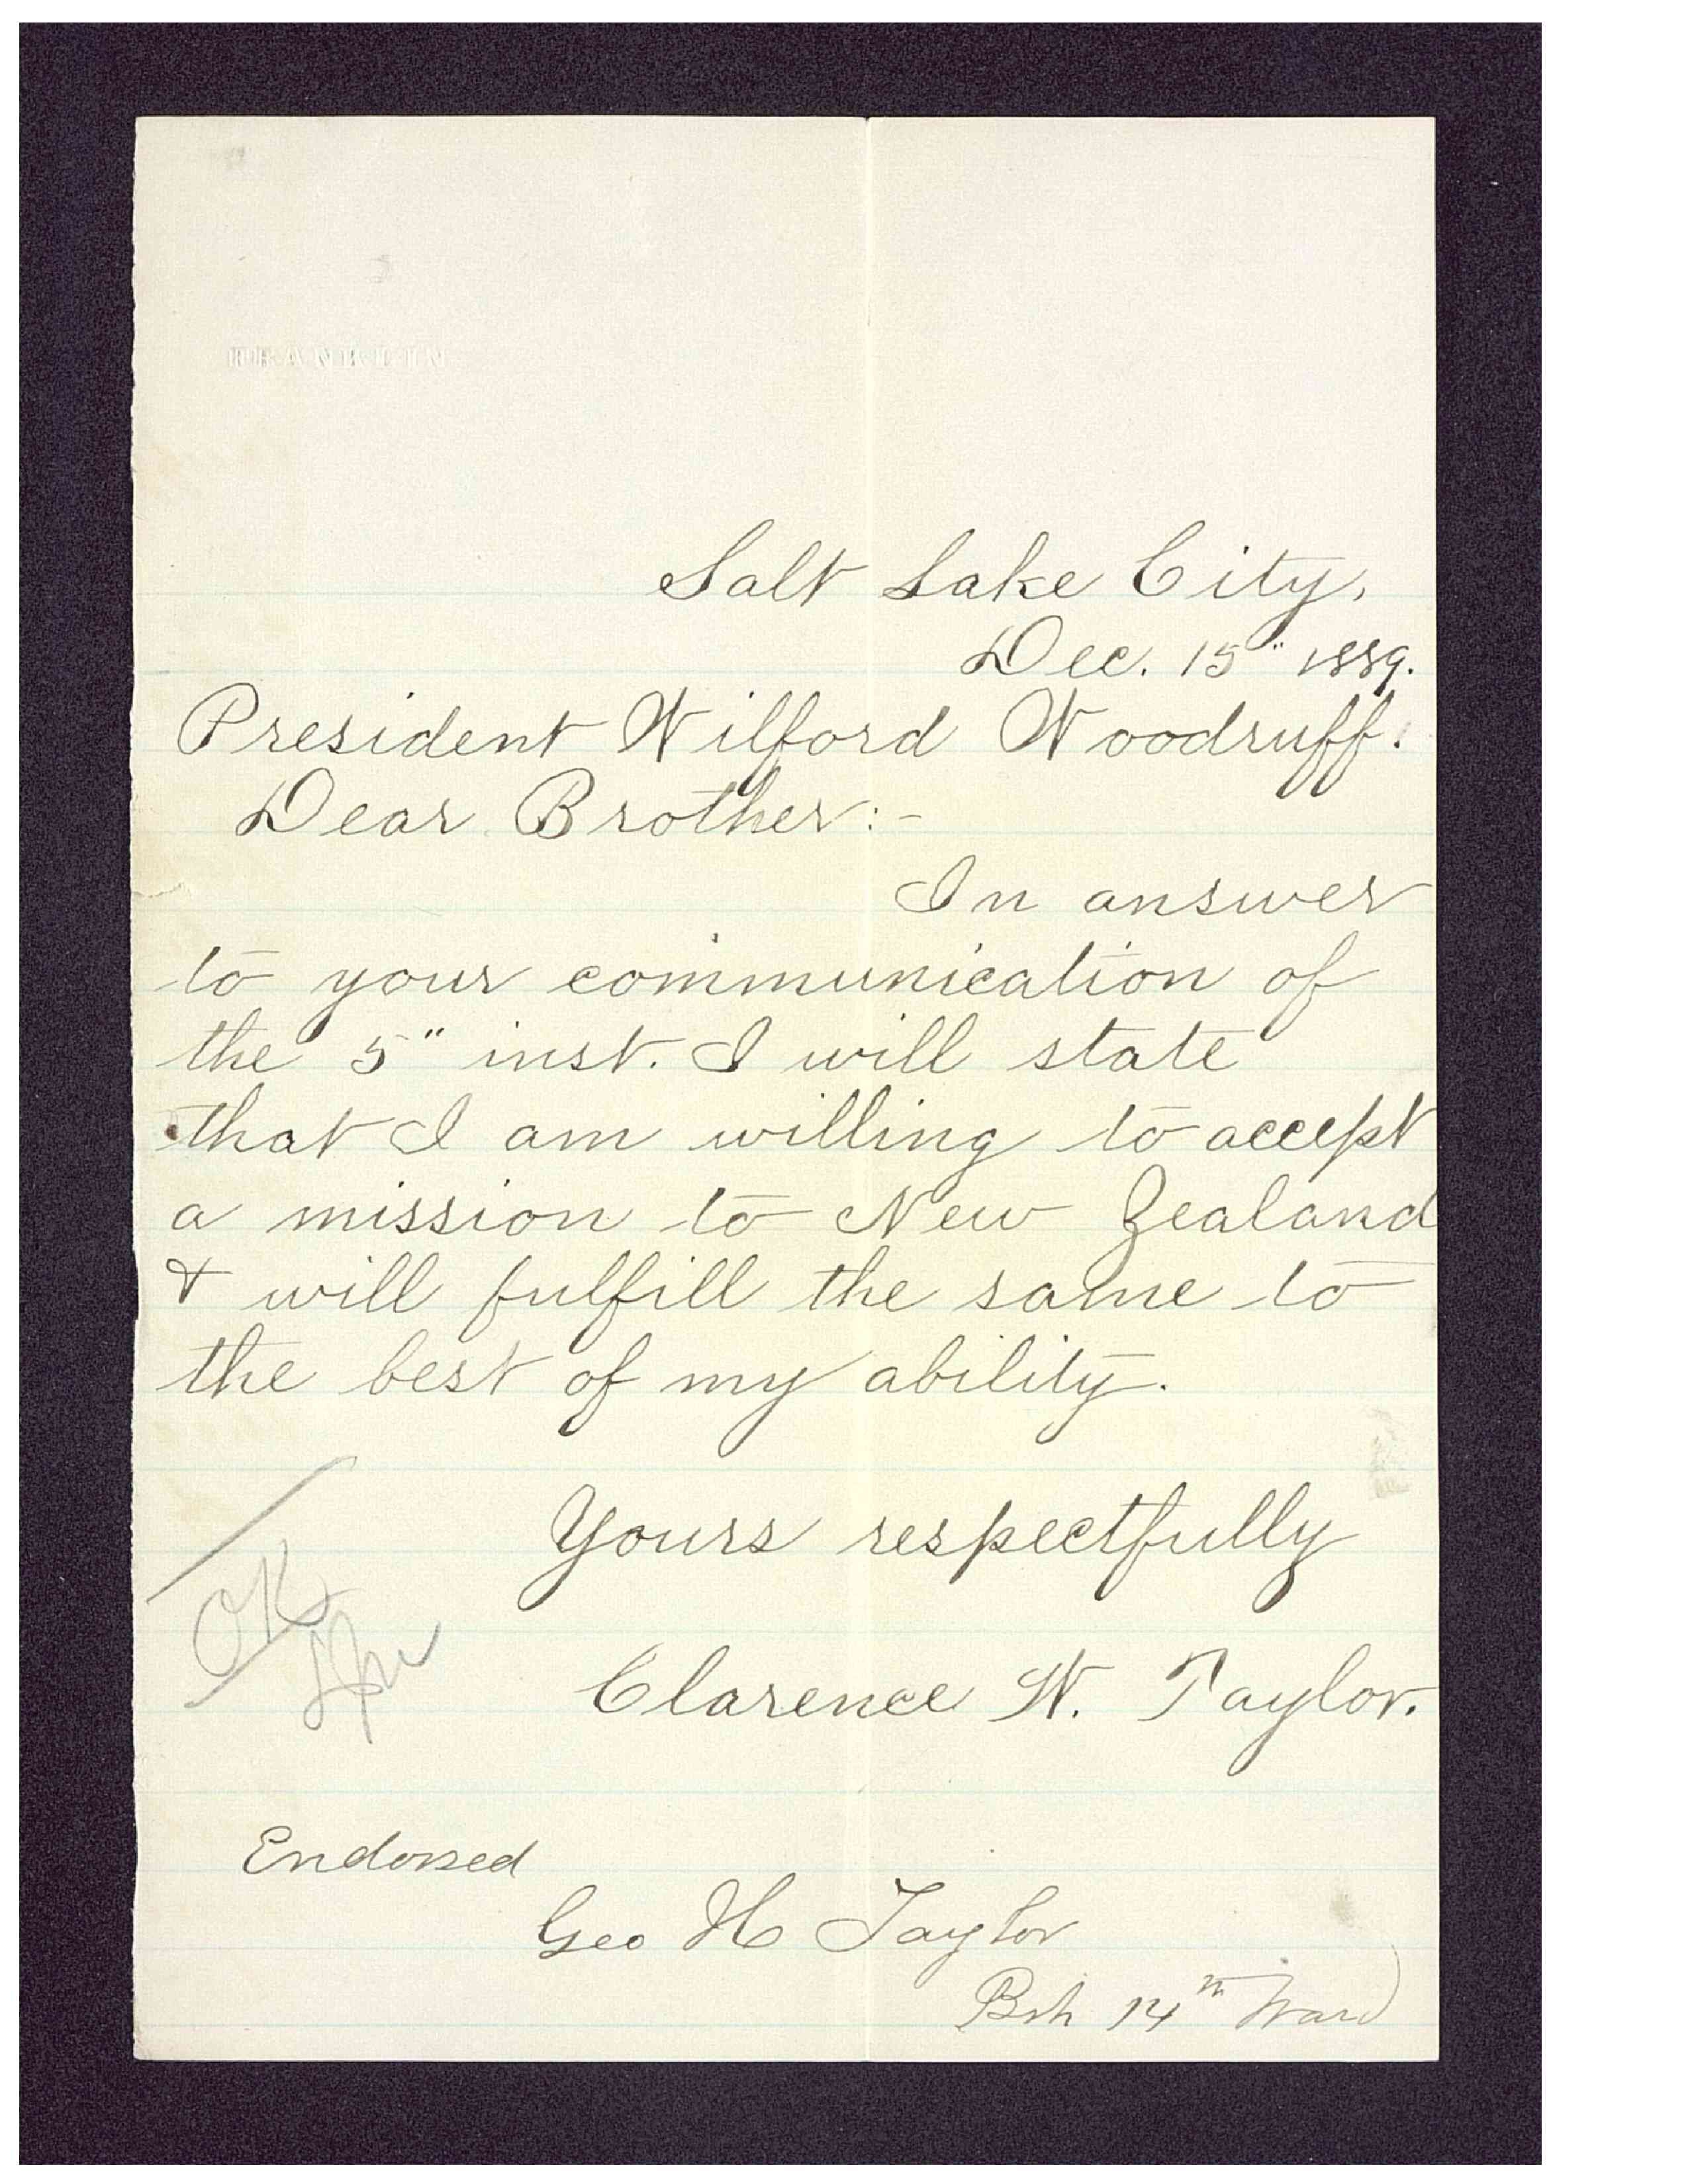 FRANKLIN
Salt Lake City,
Dec. 15" 1889.
President Wilford Woodruff.
Dear Brother:-
In answer
to your communication of
the 5" inst. I will state
that I am willing to accept
a mission to New Zealand
& will fulfill the same to
the best of my ability.
Yours respectfully
OK
Clarence W. Taylor.
Endorsed
Geo H Taylor
Bsh 14th Ward